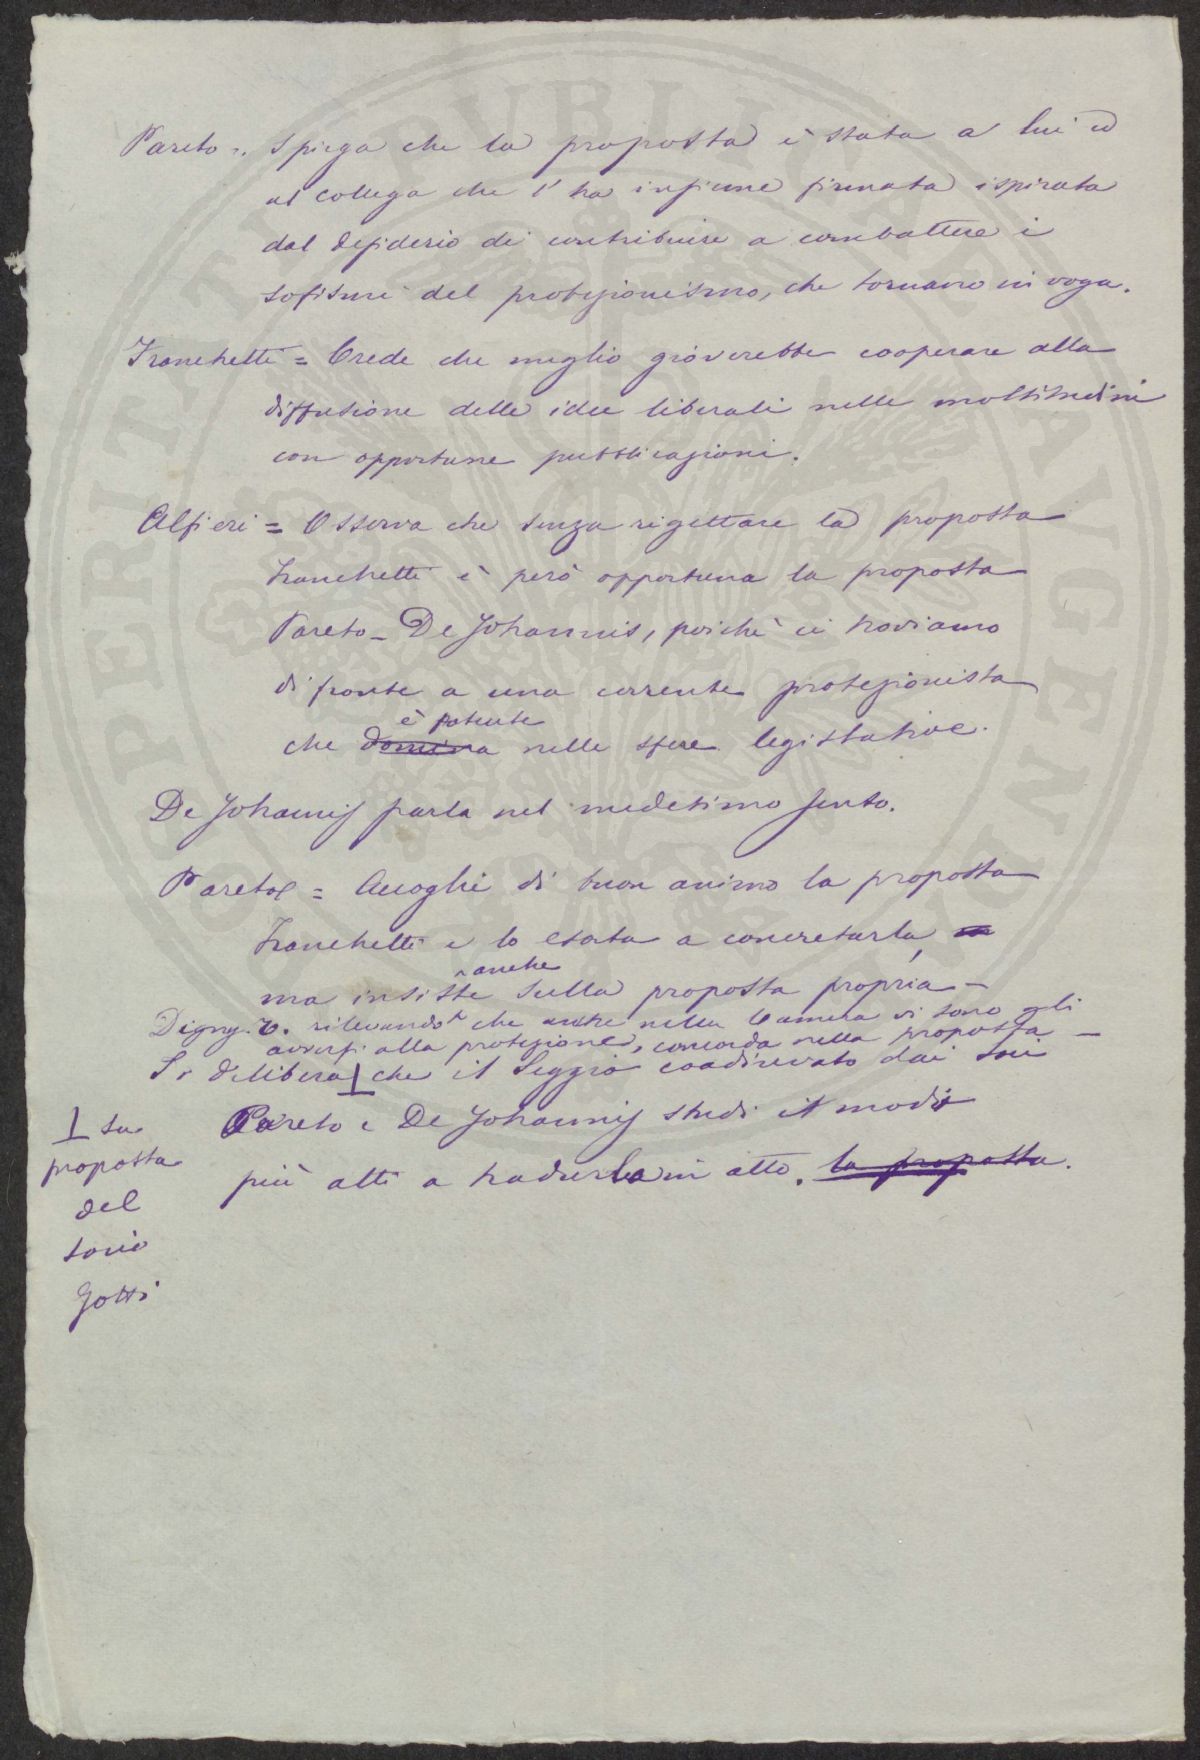 Pareto = Spiega che la proposta è stata a lui ed
al collega che l'ha insieme firmata ispirata
dal desiderio di contribuire a combattere i
sofismi del protezionismo, che tornano in voga.
Franchetti = Crede che meglio gioverebbe cooperare alla
diffusione delle idee liberali nelle moltitudini
con opportune pubblicazioni.
Alfieri = Osserva che senza rigettare la proposta
Franchetti è però opportuna la proposta
Pareto - De Johannis, poichè ci troviamo
di fronte a una corrente protezionista
è potente
che domina nelle sfere legislative.
De Johannis parla nel medesimo senso.
Pareto = Accoglie di buon animo la proposta
Franchetti e lo esorta a concretarla,
anche
ma insiste sulla proposta propria -
Digny. rilevando che anche nella Camera vi sono gli
avversi alla protezione, concorda nella proposta -
Si delibera ⊥ che il Seggio coadiuvato dai soci
Pareto e De Johannis studi i modi
più atti a tradurla in atto. la proposta.
⊥ su
proposta
del
socio
Gotti